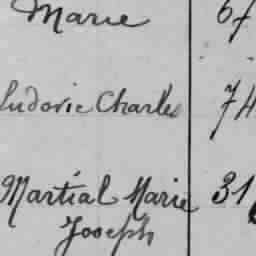 Marie 67
Ludovic Charles 74
Martial Marie 31
Joseph